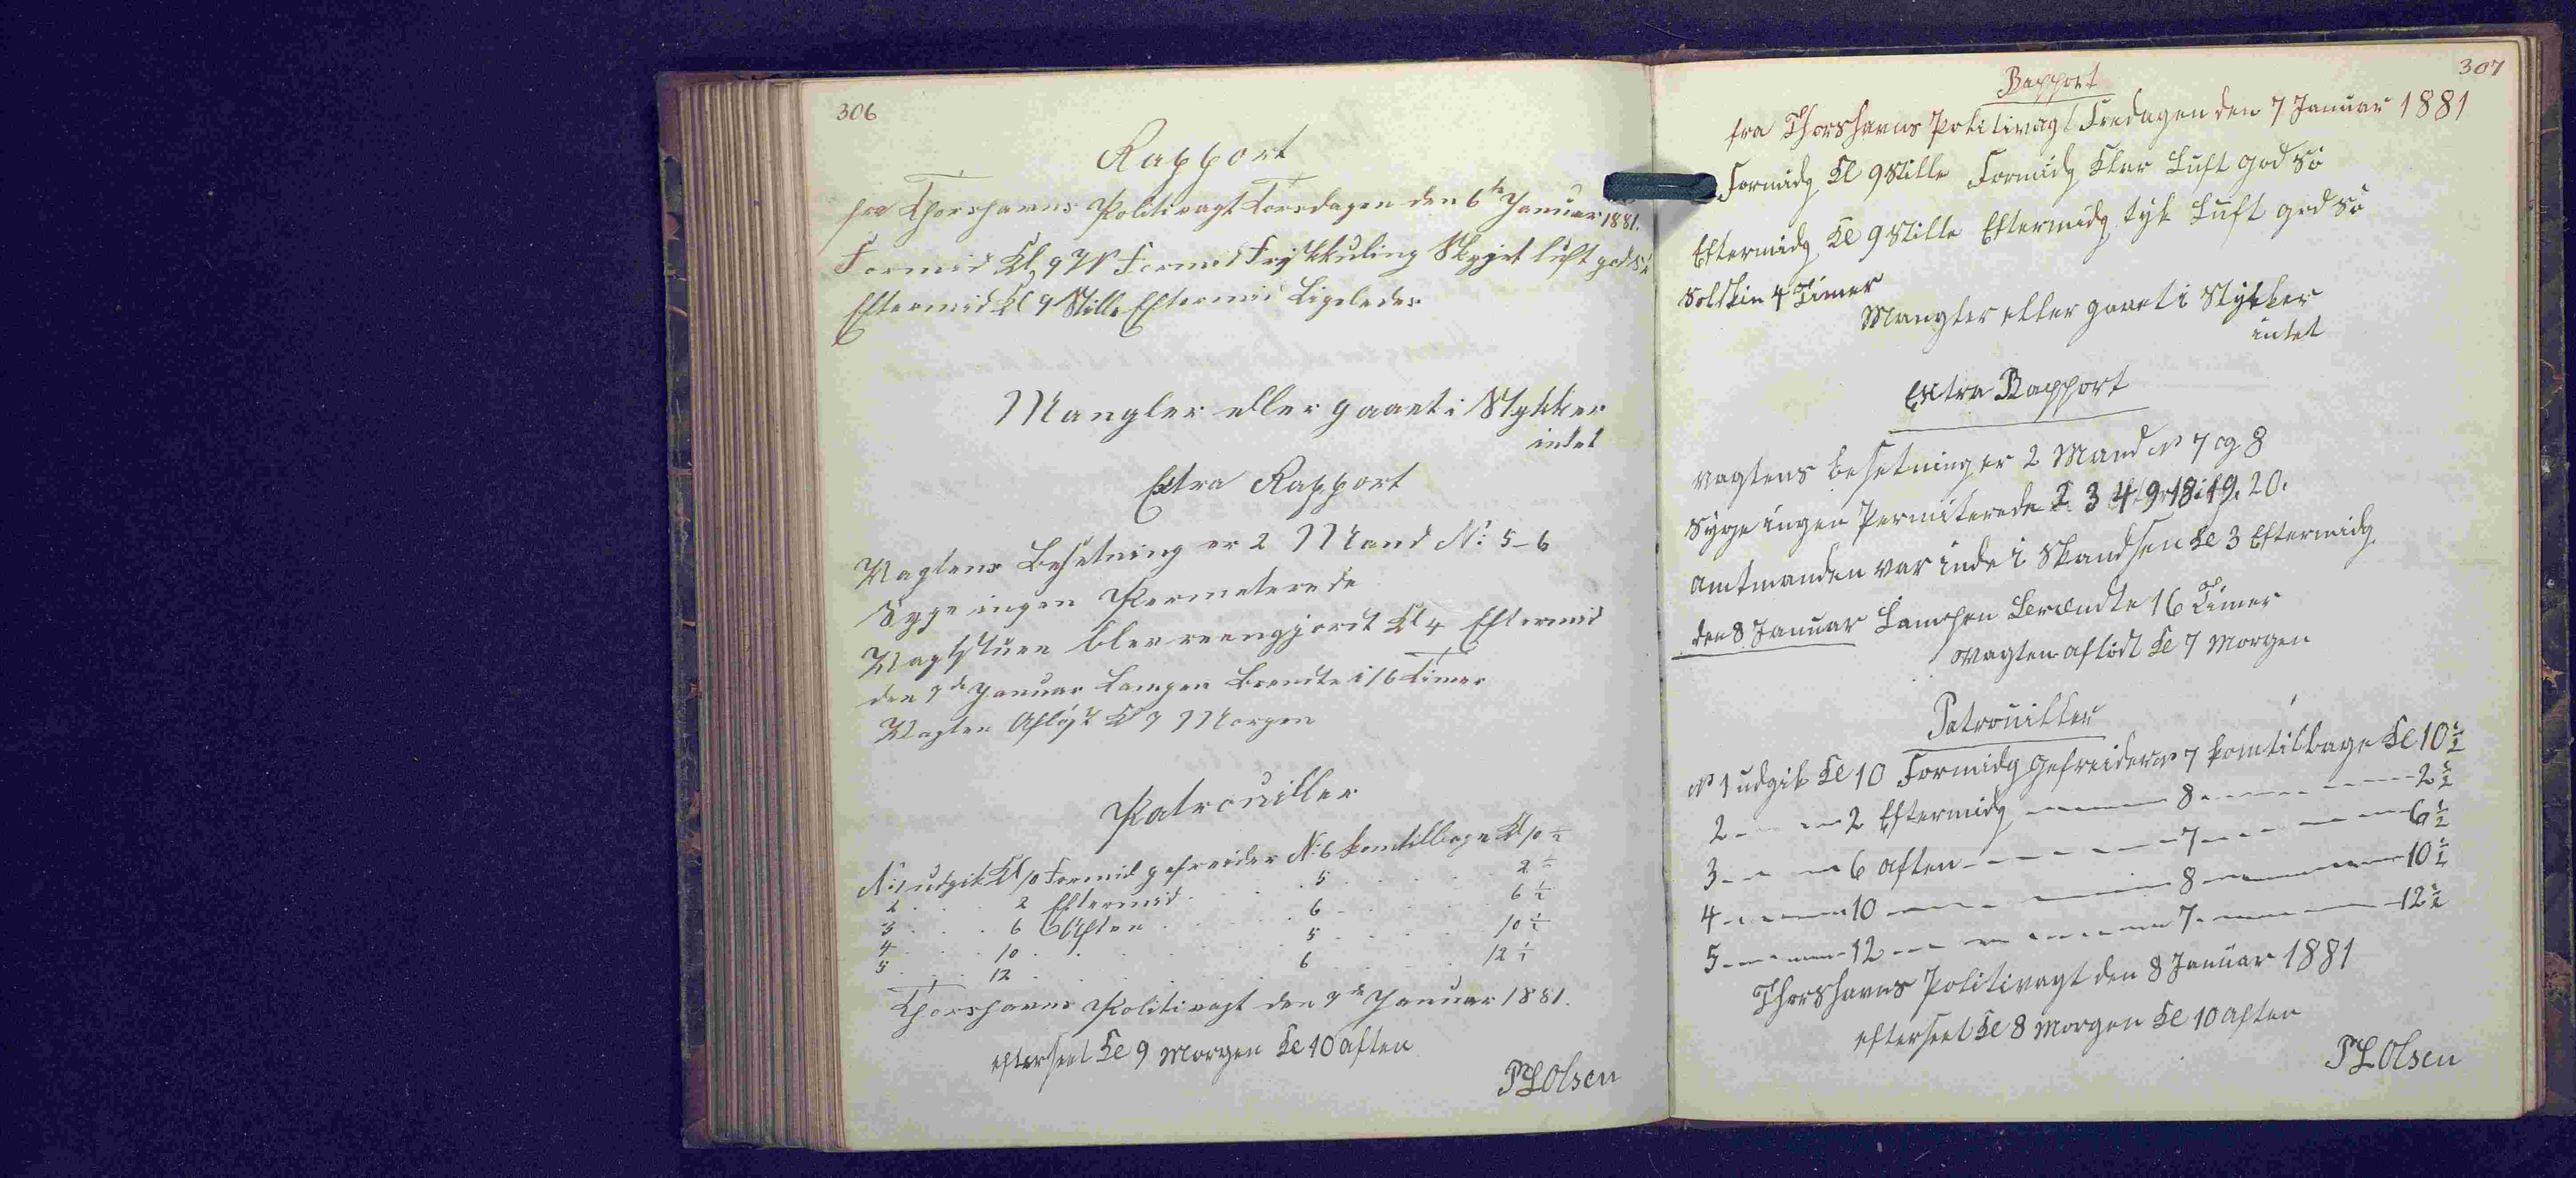 306
Rapport
fra Thorshavns Politivagt Torsdagen den 6te Januar 1881.
Formid Kl 9 V Formid Friskkuling Skyet luft god Sø
Eftermid Kl 9 Stille Eftermid Ligeledes
Mangler eller gaaet i Stykker
intet
Extra Rapport
Vagtens Besetning er 2 Mand N: 5-6
Syge ingen Permeterede
Vagtstuen blev reengjordt Kl 4 Eftermid
den 7de Januar Lampen Brendte i 16 Timer
Vagten Afløst Kl 7 Morgen
Patrouiller
N: 1 udgik Kl 10 Formid gefreider N: 6 kom tilbage Kl 10 ½
2 . . . 2 Eftermid . . . 5 . . . 2 ½
3 . . . 6 Aften . . . 6 . . . 6 ½
4 . . . 10 . . . 5 . . . 10 ½
5 . . . 12 . . . 6 . . . 12 ½
Thorshavns Politivagt den 7de Januar 1881.
efterseet Kl 9 Morgen Kl 10 aften
PLOlsen
307
Rapport
fra Thorshavns Politivagt Fredagen den 7 Januar 1881
Formidg Kl 9 Stille Formidg Klar Luft god Sö
Eftermidg Kl 9 Stille Eftermidg tyk Luft god Sö
Solskin 4 Timer
Mangler eller gaaet i Stykker
intet
Extra Rapport
Vagtens besetning er 2 Mand N 7 og 8
Syge ingen Permiterede 2. 3 4. 9. 18. 19. 20.
amtmanden var inde i Skandsen Kl 3 Eftermidg
den 8 Januar Lampen Brændte 16 Timer
Vagten aflöst Kl 7 Morgen
Patrouiller
N 1 udgik Kl 10 Formidg Gefreider N 7 kom tilbage Kl 10 ½
2 - - - 2 Eftermidg - - - 8 - - - 2 ½
3 - - - 6 aften - - - 7 - - - 6 ½
4 - - - 10 - - - 8 - - - 10 ½
5 - - - 12 - - - 7 - - - 12 ½
Thorshavns Politivagt den 8 Januar 1881
efterseet Kl 8 Morgen Kl 10 aften
PLOlsen